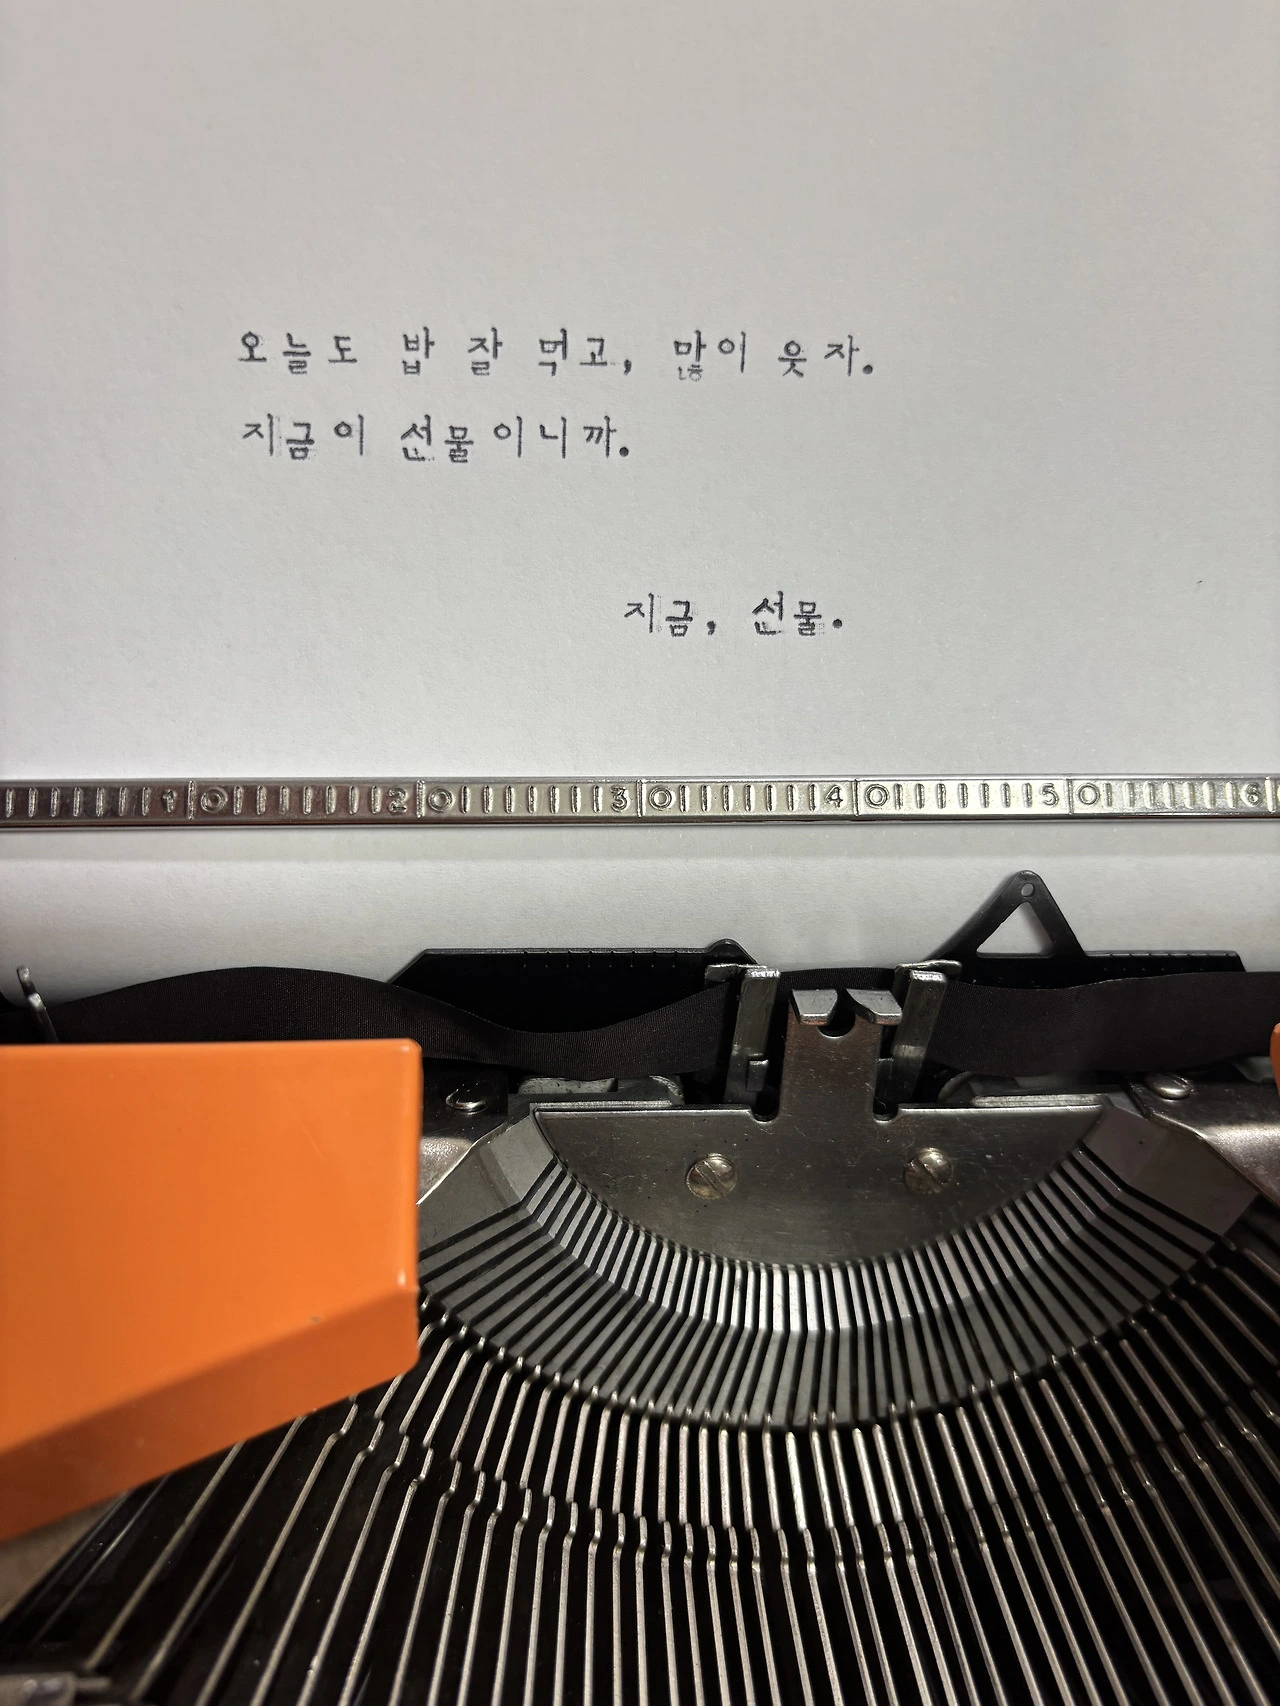 오늘도 밥 잘 먹고, 많이 웃자.
지금이 선물이니까.
지금, 선물.
10 20 30 40 50 6